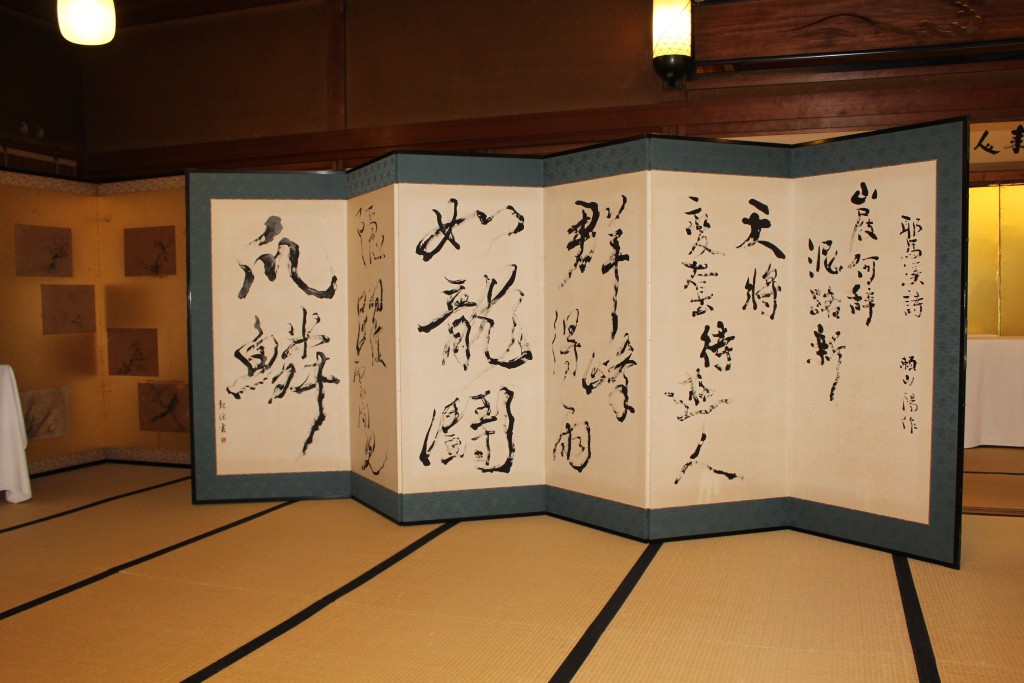 耶馬溪詩　頼山陽作
山屐何辞
泥路新
天將
變態待遊人
群峰
得雨
如龍鬪
隠躍雲間見
爪鱗